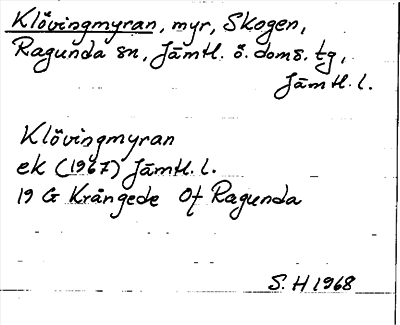 Klövingmyran, myr, Skogen,
Ragunda sn, Jämtl. ö. doms. tg,
Jämtl. l.
Klövingmyran
ek (1967) Jämtl. l.
19 G Krångede Of Ragunda
S. H 1968